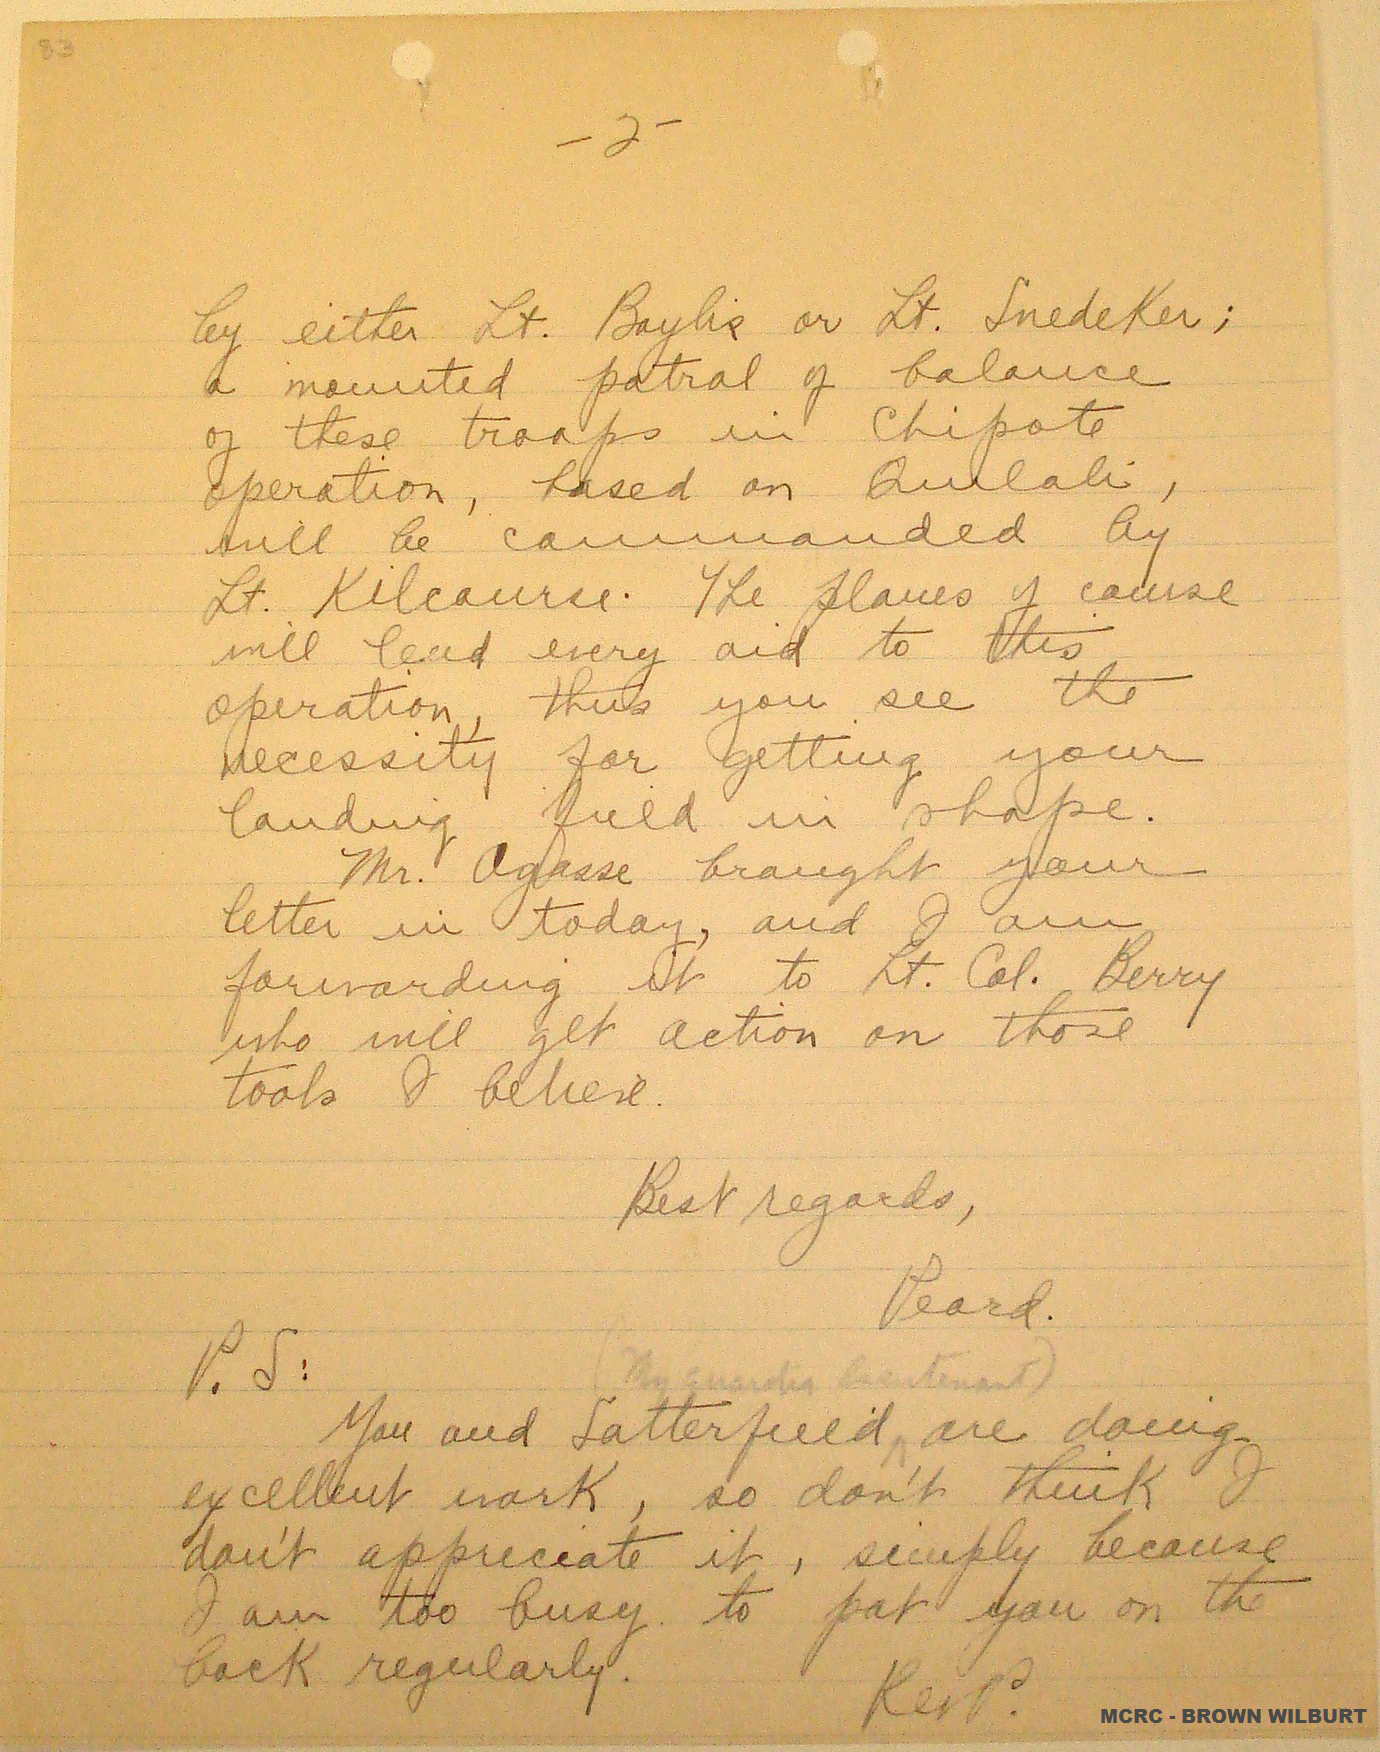 83
- 2 -
by either Lt. Baylis or Lt. Snedeker;
a mounted patrol of balance
of these troops in Chipote
operation, based on Quilali,
will be commanded by
Lt. Kilcourse. The planes of course
will lend every aid to this
operation, thus you see the
necessity for getting your
landing field in shape.
Mr. Agasse brought your
letter in today, and I am
forwarding it to Lt. Col. Berry
who will get action on those
tools I believe.
Best regards,
Peard.
P. S:
(My guardia lieutenant)
You and Satterfield, are doing
excellent work, so don't think I
don't appreciate it, simply because
I am too busy to pat you on the
back regularly.
MCRC - BROWN WILBURT